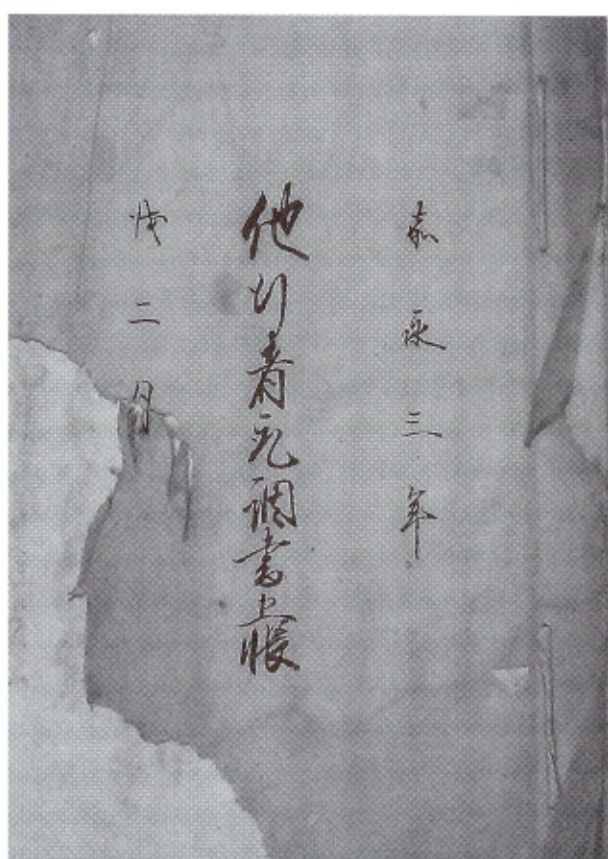 嘉永三年
他行者調書上帳
戌二月